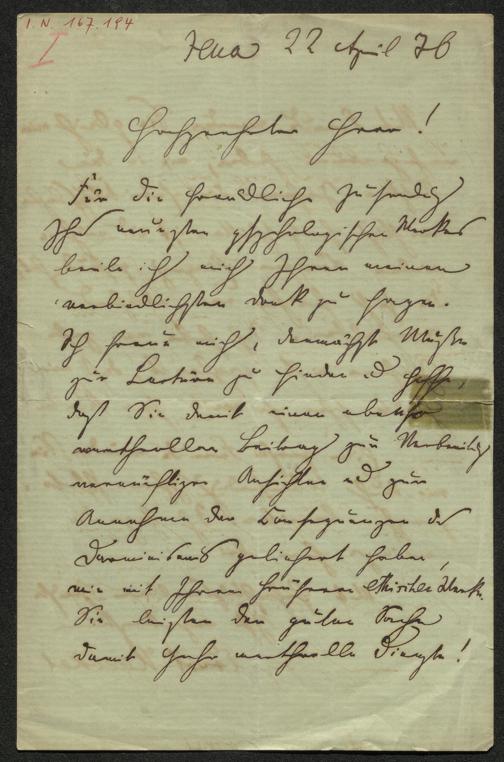 I. N. 167.194
I
Jena 22 April 76
Hochgeehrter Herr!
Für die freundliche Zusendg
Ihres neuesten psychologischen Werkes
beeile ich mich Ihnen meinen
verbindlichsten Dank zu sagen.
Ich freue mich, demnächst Muße
zur Lectüre zu finden u hoffe,
daß Sie damit einen ebenso
werthvollen Beitrag zur Verbreitg
vernünftiger Ansichten und zur
Annahme der Consequenzen des
Darwinismus geliefert haben,
wie mit Ihrem früheren Werke.
Sie leisten der guten Sache
damit sehr werthvolle Dienste!